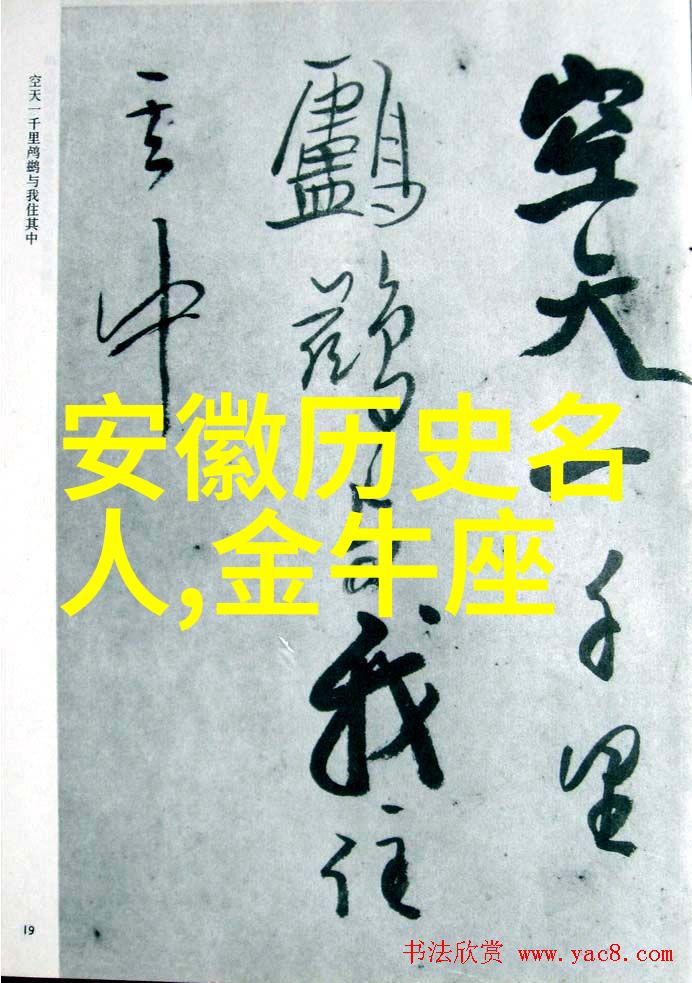 空天一千里
鸕鷀与我住
其中
空天一千里鸬鹚与我住其中
安徽历史名
人,金牛座
19
书法欣赏 www.yac8.com